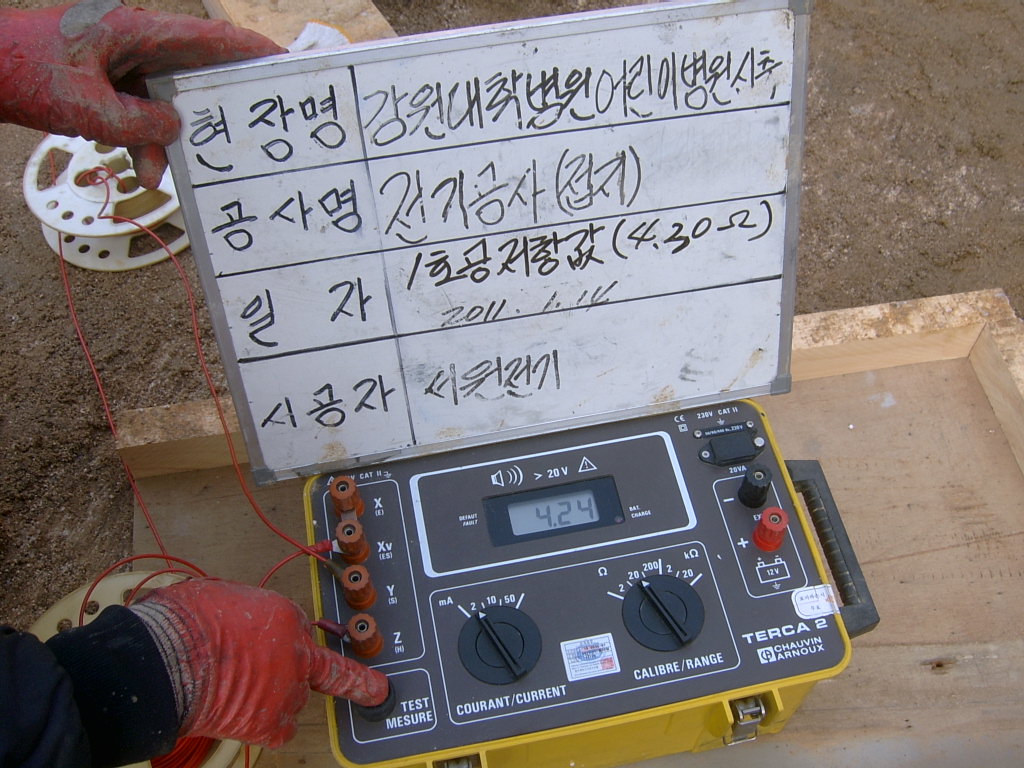 현장명 강원대학병원어린이병원신축
공사명 전기공사(접지)
1호공저항값(4.30Ω)
일 자 2011. 1. 14
시공자 서원전기
CAT II
X
(E)
Xv
(ES)
Y
(S)
Z
(H)
> 20 V
DEFAUT
FAULT
4.24
BAT.
CHARGE
CE
230V CAT II
20VA
-
+
12V
mA
2 10 50
COURANT/CURRENT
Ω
kΩ
2 20 200 2 20
CALIBRE/RANGE
TEST
MESURE
TERCA 2
CHAUVIN
ARNOUX